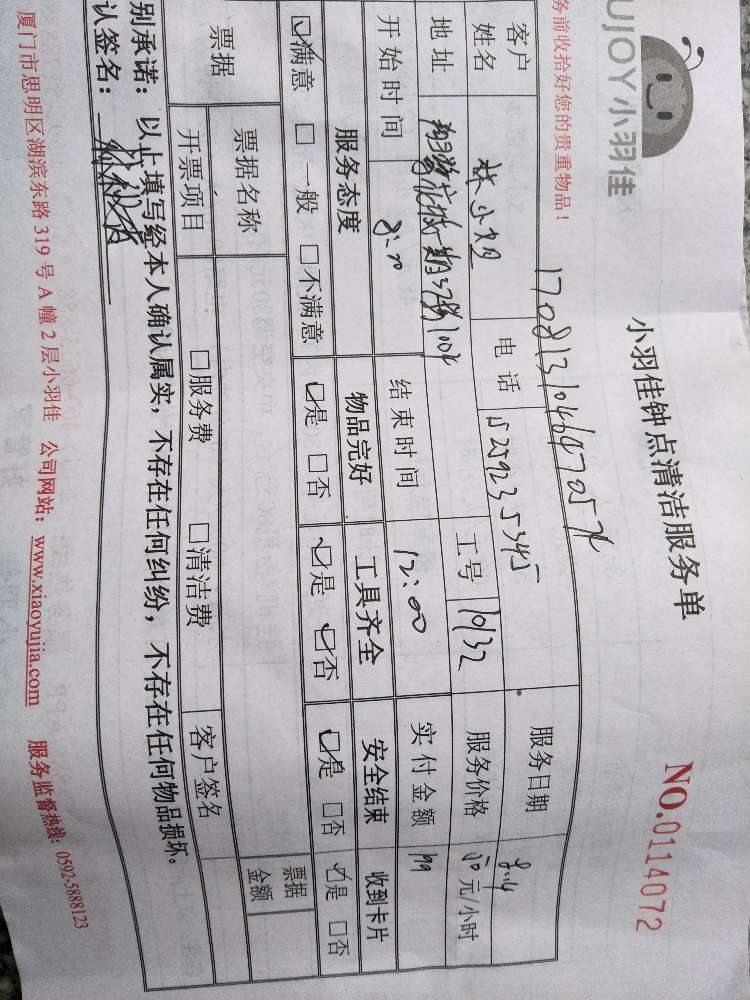 UJOY小羽佳
务前收拾好您的贵重物品！
小羽佳钟点清洁服务单
NO.0114072
客户
姓名
林小姐
电 话
服务日期
8.14
地址
工号
1032
服务价格
50 元/小时
开始时间
8:00
结束时间
12:00
实付金额
199
服务态度
物品完好
工具齐全
安全结束
收到卡片
☑满意 □ 一般 □不满意
☑是 □否
☑是 ☑否
☑是 □否
☑是 □否
票据
票据名称
票据
金额
开票项目
□服务费 □清洁费
客户签名
别承诺：以上填写经本人确认属实，不存在任何纠纷，不存在任何物品损坏。
认签名：
厦门市思明区湖滨东路 319 号 A 幢 2 层小羽佳 公司网站：www.xiaoyujia.com 服务监督热线：0592-5888123